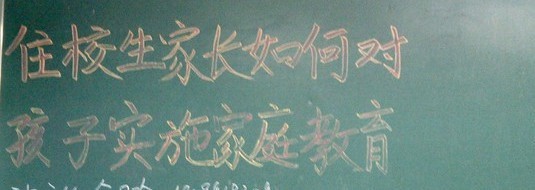 住校生家长如何对
孩子实施家庭教育